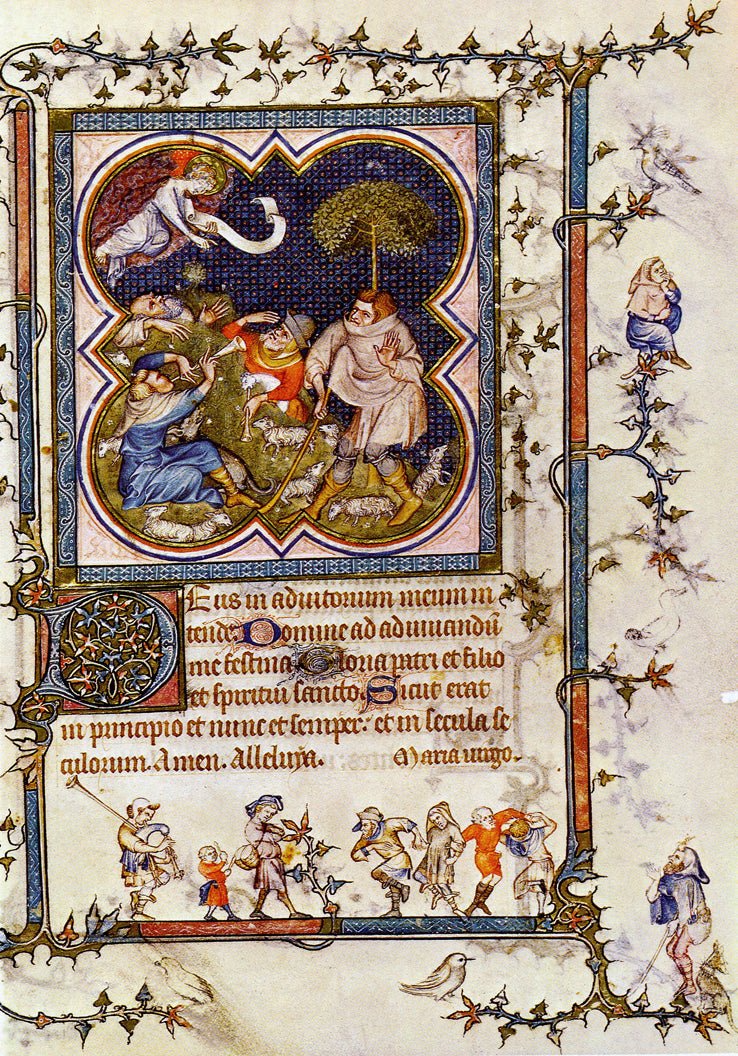 Deus in adiutorium meum in
tende. Domine ad adiuuandū
me festina. Gloria patri et filio
et spiritui sancto. Sicut erat
in principio et nunc et semper: et in secula se
culorum. Amen. Alleluya. Maria uirgo.